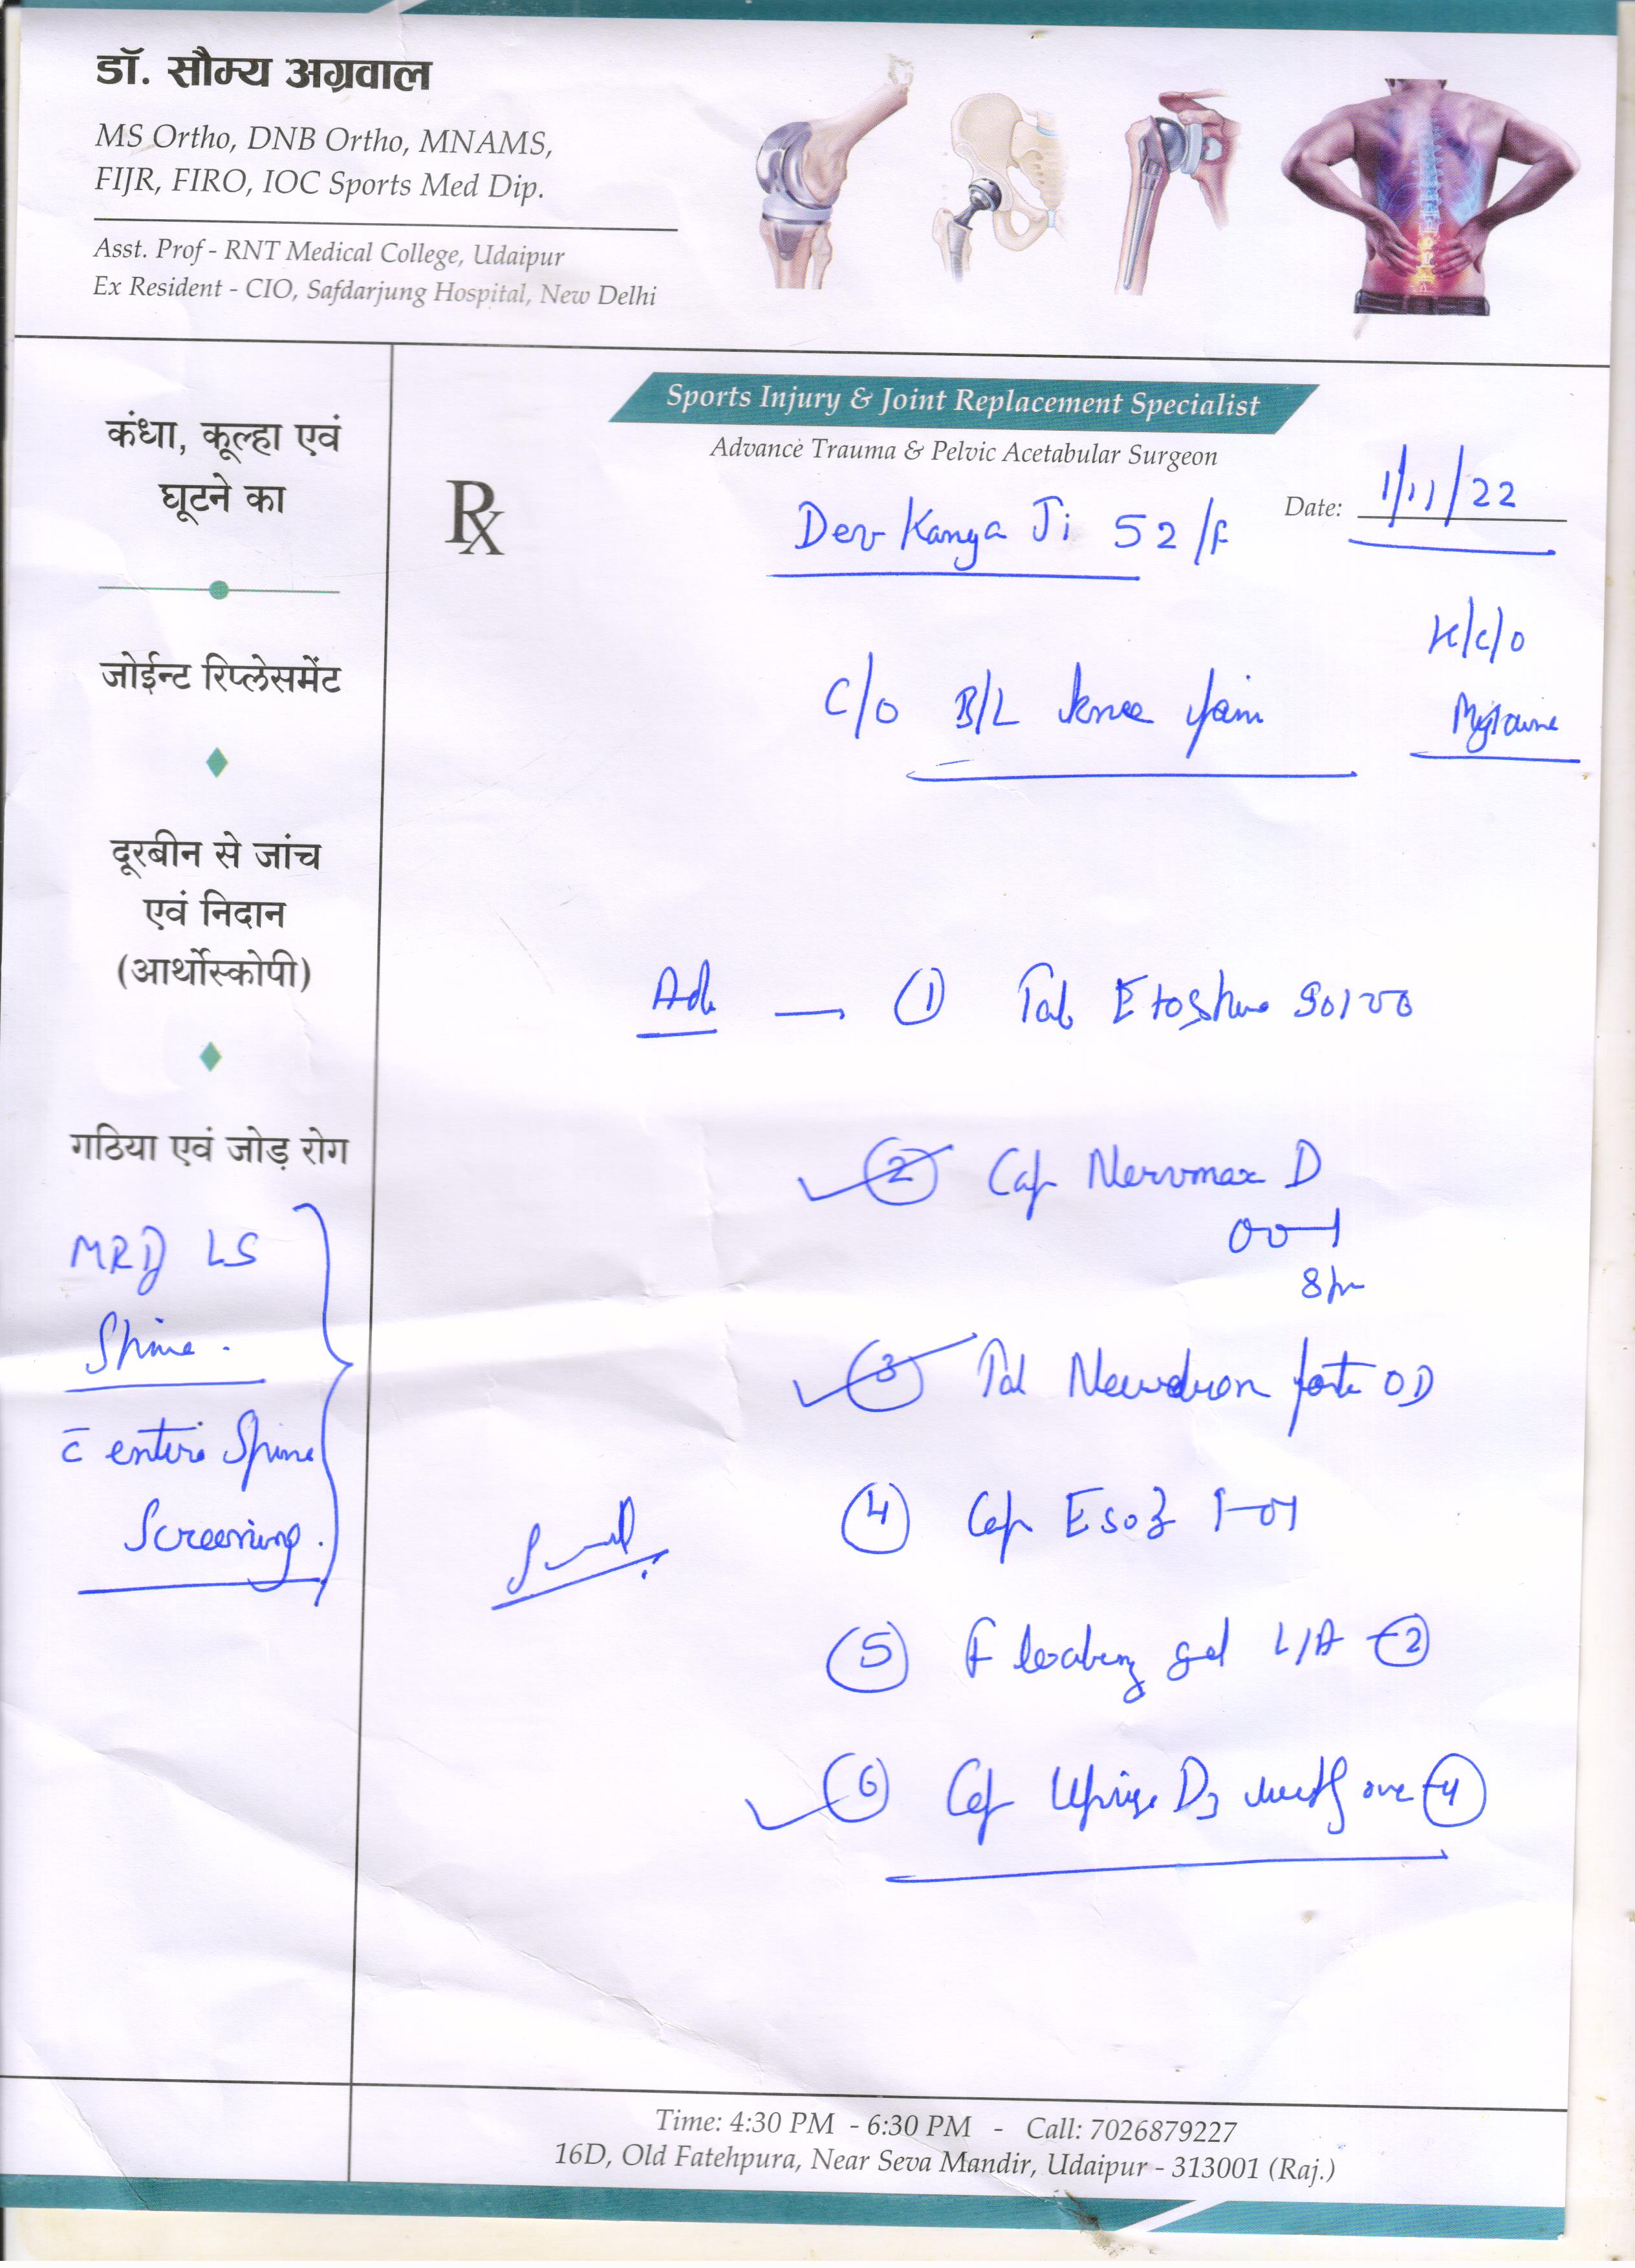 डॉ. सौम्य अग्रवाल
MS Ortho, DNB Ortho, MNAMS,
FIJR, FIRO, IOC Sports Med Dip.
Asst. Prof - RNT Medical College, Udaipur
Ex Resident - CIO, Safdarjung Hospital, New Delhi
Sports Injury & Joint Replacement Specialist
Advance Trauma & Pelvic Acetabular Surgeon
कंधा, कूल्हा एवं
घूटने का
जोईन्ट रिप्लेसमेंट
दूरबीन से जांच
एवं निदान
(आर्थोस्कोपी)
गठिया एवं जोड़ रोग
MRI LS
Spine.
c̄ entire Spine
Screening.
Rx
Date: 1/11/22
Dev Kanya Ji 52/F
K/c/o
Migraine
C/o B/L knee pain
Adv — ① Tab 90
② Cap Nervmax D
00-1
8pm
③ Tab forte OD
④ Cap Esoz
⑤ gel L/A -②
⑥ Cap Uprise D3 -④
Time: 4:30 PM - 6:30 PM - Call: 7026879227
16D, Old Fatehpura, Near Seva Mandir, Udaipur - 313001 (Raj.)